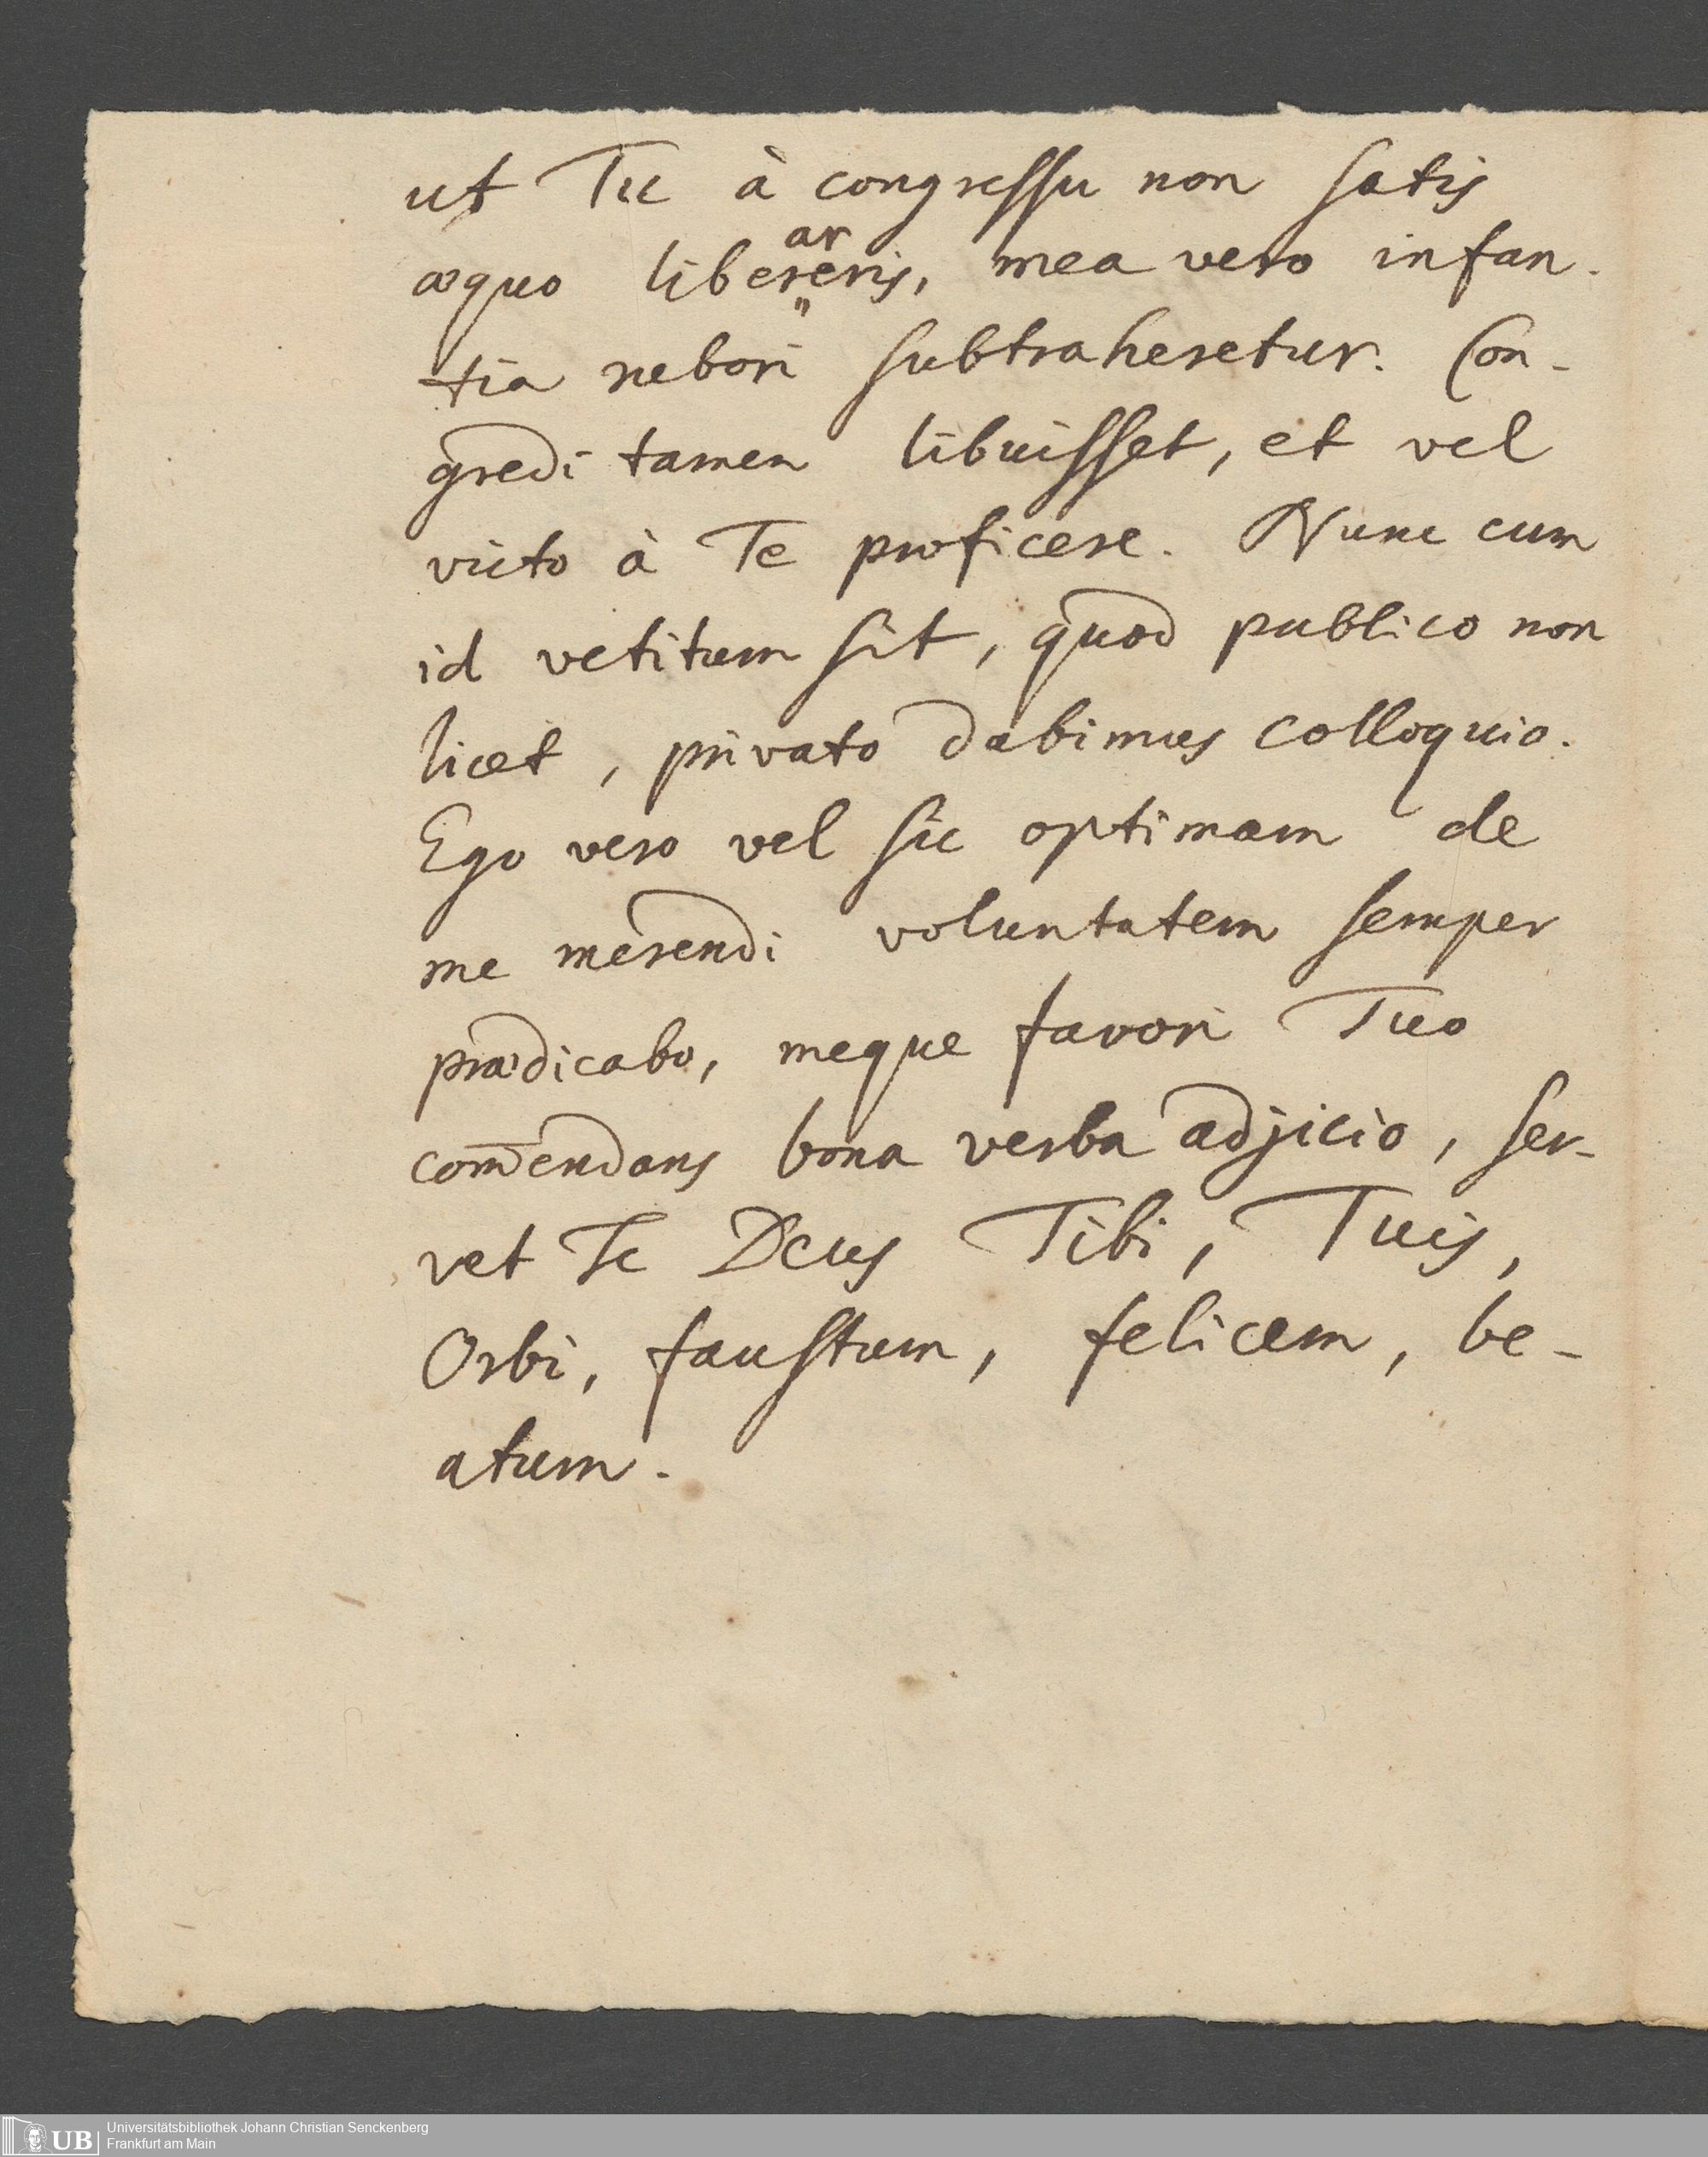 ut Tu à congressu non satis
æquo liber^ar^eris, mea vero infan-
tia rubori subtraheretur. Con-
gredi tamen libuisset, et vel
victo à Te proficere. Nunc cum
id vetitum sit, quod publico non
licet, privato dabimus colloquio.
Ego vero vel sic optimam de
me merendi voluntatem semper
prædicabo, meque favori Tuo
com̄endans bona verba adjicio, ser-
vet Te Deus Tibi, Tuis,
Orbi, faustum, felicem, be-
atum.
UB Universitätsbibliothek Johann Christian Senckenberg
Frankfurt am Main